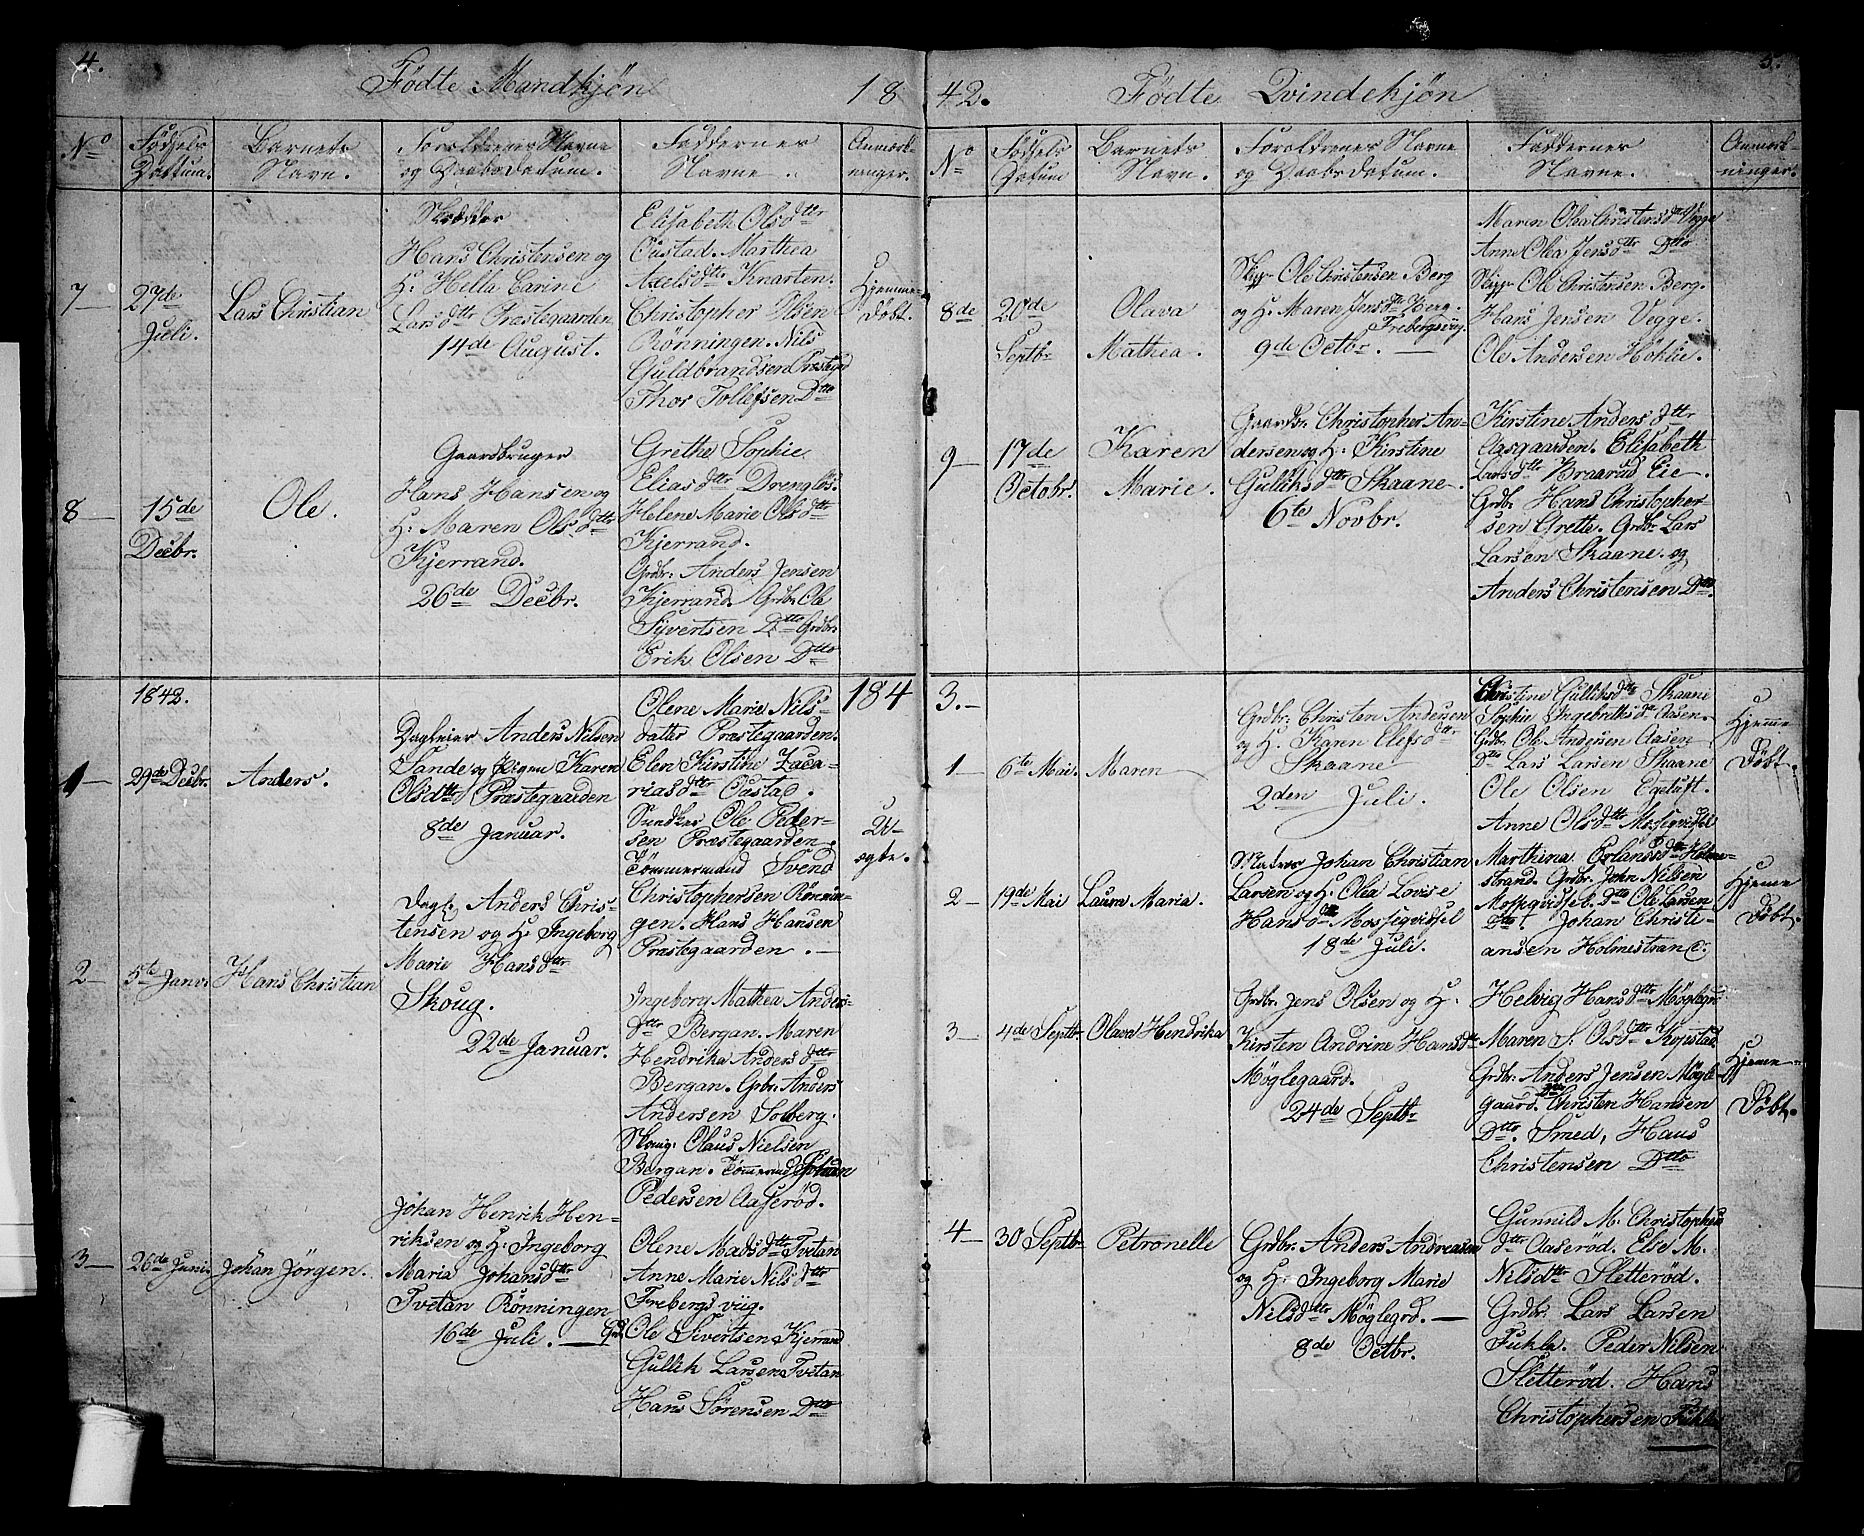 4.
Födte Mandkjön
18
No
Födsels Dattum.
Barnets Navn.
Foreldrenes Navne og Daabsdatum.
Faddernes Navne.
Anmærkninger.
7
27de Juli.
Lars Christian
Skrædder
Hans Christensen og
H. Hella Carine
Larsdttr Præstegaarden
14de August.
Elisabeth Olsdttr
Oustad. Marthea
Axelsdttr Knarten.
Christopher Olsen
Rönningen. Nils
Guldbrandsen
Thor Tollefsen Dtto
Hjemme-
Döbt.
8
15de
Decbr.
Ole.
Gaardbruger
Hans Hansen og
H. Maren Olsdttr
Kjerrand.
26de Decbr.
Grethe Sophie
Eliasdttr
Helene Marie Olsdttr
Kjerrand.
Grdbr. Anders Jensen
Kjerrand. Grdbr. Ole
Sivertsen Dtto Grdbr.
Erik Olsen Dtto
1842.
184
1
29de Decbr.
Anders.
Anders Nilsen
Sande og Pigen Karen
Olsdttr Præstegaarden
8de Januar.
Olene Marie Nils-
datter Præstegaarden.
Elen Kirstine Zaca-
riasdttr Oustad.
Ole Peder-
sen Præstegaarden.
Tömmermand Svend
Christophersen Rönnin-
gen. Hans Hansen
Præstegaarden.
U-
ægte.
2
5te Janr.
Hans Christian
Anders Chris-
tensen og H. Ingeborg
Marie Hansdttr
Skoug.
22de Januar.
Ingeborg Mathea Anders-
dttr Bergan. Maren
Hendrika Andersdttr
Bergan. Grbr. Anders
Andersen Solberg.
Olaus Nielsen
Bergan. Johan
Pedersen Aaseröd.
3
26de Juni
Johan Jörgen.
Johan Henrik Hen-
riksen og H. Ingeborg
Maria Johansdttr
Tvetan Rönningen
16de Juli.
Olene Madsdttr Tvetan
Anne Marie Nilsdttr
Frebergsviig.
Ole Sivertsen Kjerrand
Gullik Larsen Tvetan
Hans Sörensen Dtto
5.
42.
Födte Qvindekjön
No
Födsels Datum
Barnets Navn.
Foreldrenes Navne og Daabsdatum.
Faddernes Navne.
Anmærkninger.
8de
20de
Septbr
Olava
Mathea.
Skpr Ole Christensen Berg
og H. Maren Jensdttr Berg.
Frebergsvig.
9de Octbr.
Maren Olea Christensdttr Vegge
Anne Olea Jensdttr Dtto
Skpr Ole Christensen Berg.
Hans Jensen Vegge.
Ole Andersen
9
17de
Octobr.
Karen
Marie.
Gaardbr. Christopher An-
dersen og H. Kirstine
Gulliksdttr Skaane.
6te Novbr.
Kirstine Andersdttr
Aasgaarden. Elisabeth
Larsdttr Braarud Eie.
Grdbr. Hans Christopher-
sen Grette. Grdbr. Lars
Larsen Skaane. og
Anders Christensen Dtto.
3.
1
6te Mai.
Maren
Grdbr. Christen Andersen
og H. Karen Elefsdttr
Skaane
2den Juli.
Christine Gulliksdttr Skaane
Sophie Ingebretsdttr Aasen.
Grdbr. Ole Andersen Aasen
Dtto Lars Larsen Skaane
Ole Olsen
Anne Olsdttr
Hjemme
Döbt.
2
19de Mai
Laura Maria.
Johan Christian
Larsen og H. Olea Lovise
Hansdttr
18de Juli.
Marthina Holme-
strand. Grdbr. John Nilsen
Dtto Ole Larsen
Dtto. Johan Christi-
ansen Holmestrand.
Hjemme
Döbt.
3
4de Septbr.
Olava Hendrika
Grdbr. Jens Olsen og H.
Kirsten Andrine Hansdttr
Möglegaard.
24de Septbr
Helvig Hansdttr Möglegrd
Maren S. Olsdttr Kopstad
Grdbr. Anders Jensen Mögle-
gaard. Dtto Christen Hansen
Dtto. Smed, Hans
Christensen Dtto
Hjemme-
Döbt.
4
30 Septbr
Petronelle
Grdbr. Anders Andreasen
og H. Ingeborg Marie
Nilsdttr Möglegrd.
8de Octbr.
Gunnild M. Christophers
dttr Aaseröd. Else M.
Nilsdttr Sletteröd.
Grdbr. Lars Larsen
Fukle. Peder Nilsen
Sletteröd. Hans
Christophersen Fukle